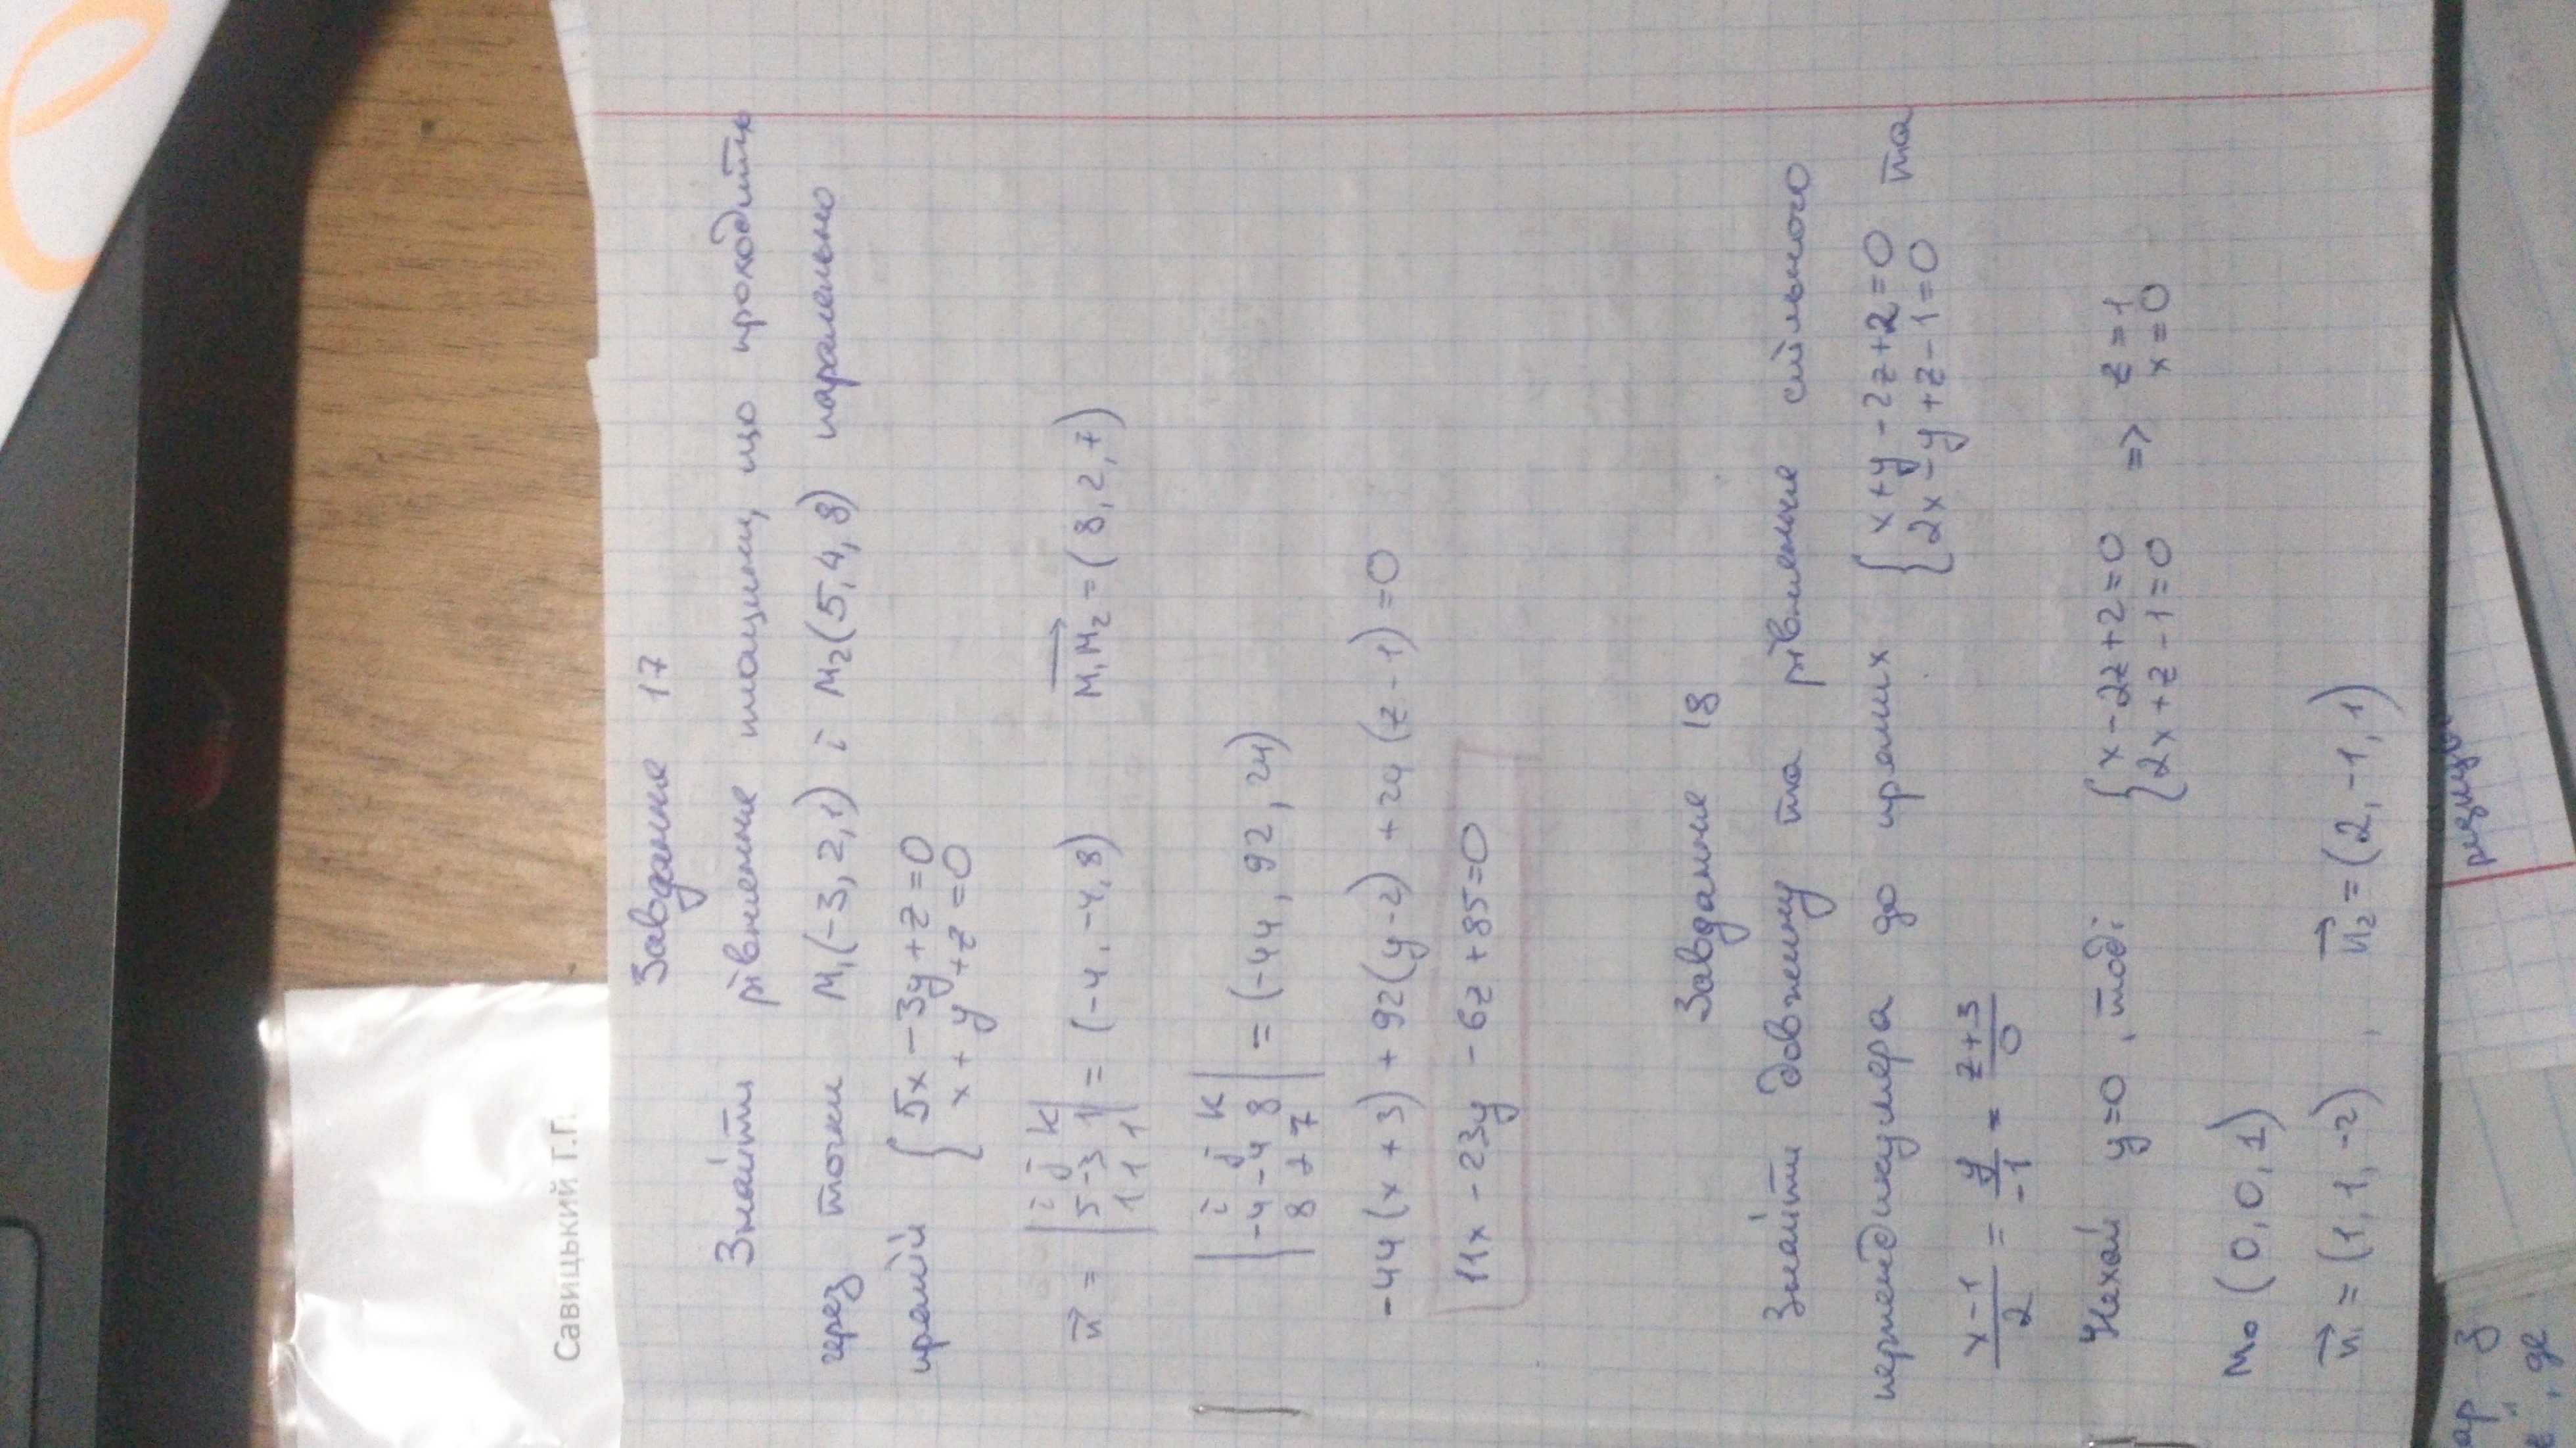 Савицький Г.П.
Завдання 17
Знайти рівняння площини, що проходить
через точки M₁(-3, 2, 1) і M₂(5, 4, 8) паралельно
прямій { 5x - 3y + z = 0
x + y + z = 0
n⃗ = | i j k | 5 -3 1 | 1 1 1 | = (-4, -4, 8) M₁M₂ = (8, 2, 7)
| i j k | -4 -4 8 | 8 2 7 | = (-44, 92, 24)
-44(x + 3) + 92(y - 2) + 24(z - 1) = 0
11x - 23y - 6z + 85 = 0
Завдання 18
Знайти довжину та рівняння спільного
перпендикуляра до прямих { x + y - 2z + 2 = 0 та
2x - y + z - 1 = 0
(x-1)/2 = y/-1 = (z+3)/0
Нехай y=0, тоді { x - 2z + 2 = 0 => z = 1
2x + z - 1 = 0 x = 0
M₀ (0, 0, 1)
n₁ = (1, 1, -2), n₂ = (2, -1, 1)
ар з
, де